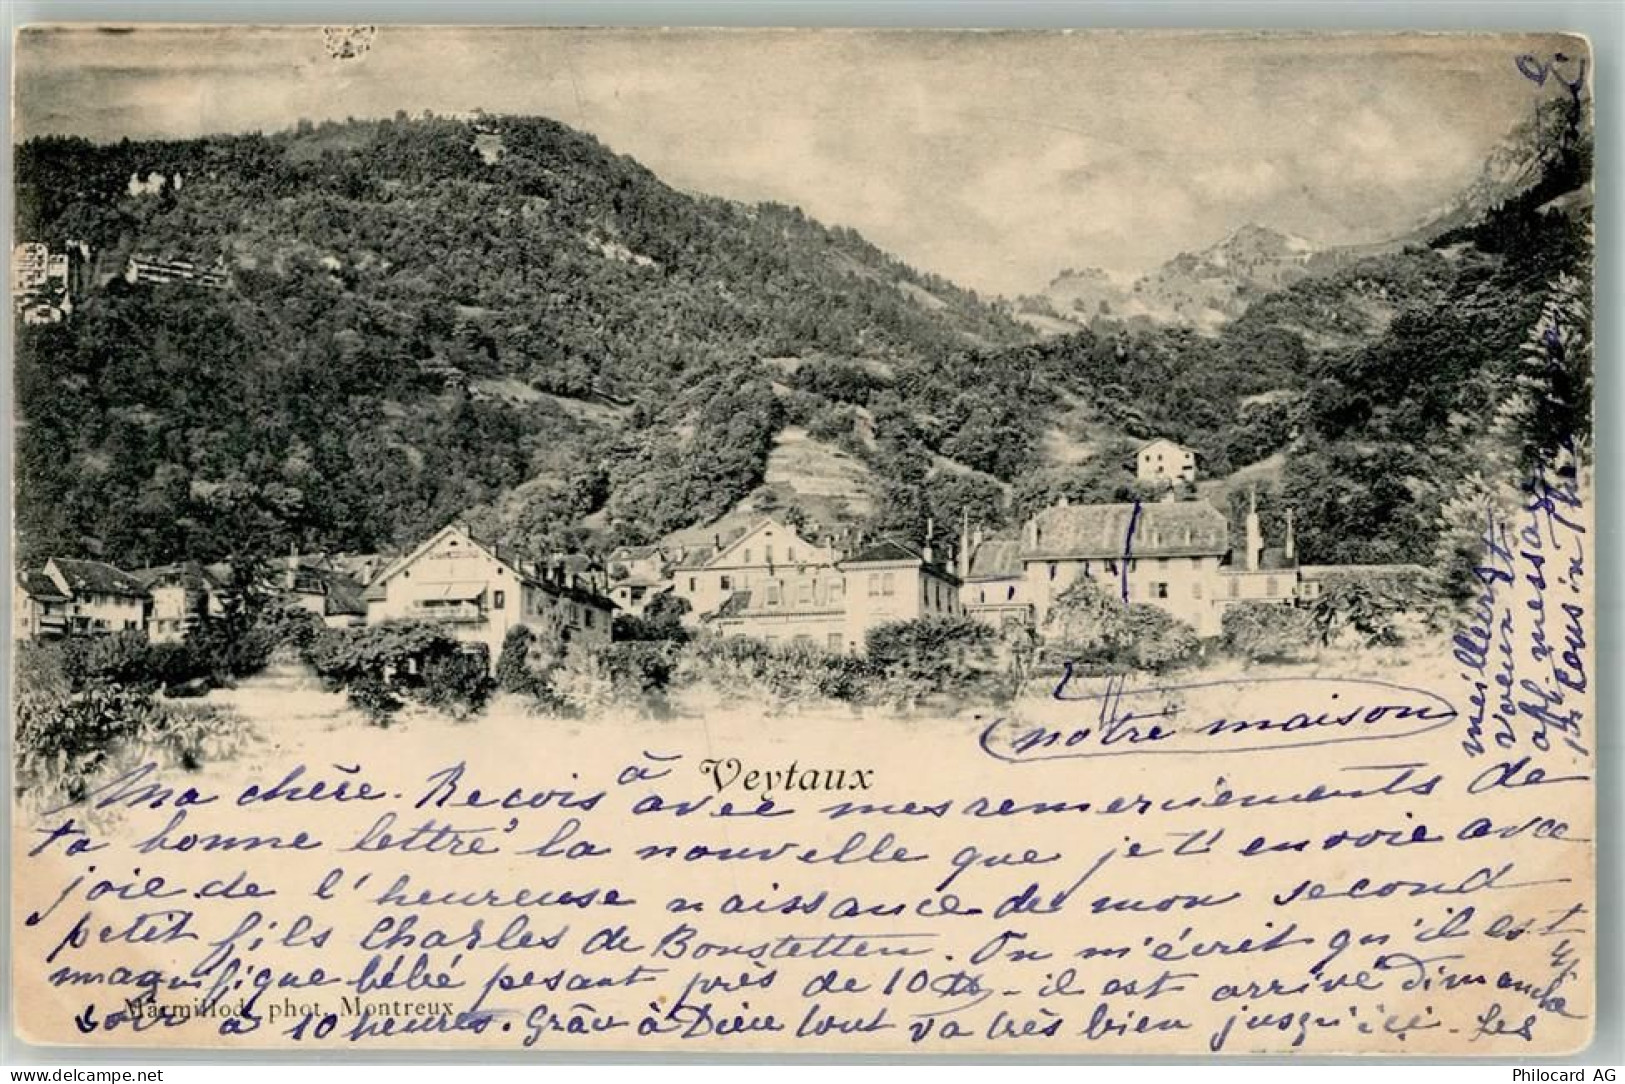 notre maison
Veytaux
Ma chère. Reçois à avec mes remerciements de
ta bonne lettre la nouvelle que je t'envoie avec
joie de l'heureuse naissance de mon second
petit fils Charles de Bonstetten. On m'écrit qu'il est
magnifique bébé pesant près de 10 ℔ - il est arrivé dimanche
soir à 10 heures. Grâce à Dieu tout va très bien jusqu'ici - Les
Marmillod, phot. Montreux
meilleurs
voeux et
aff. messages
Cousin
delcampe.net
Philocard AG